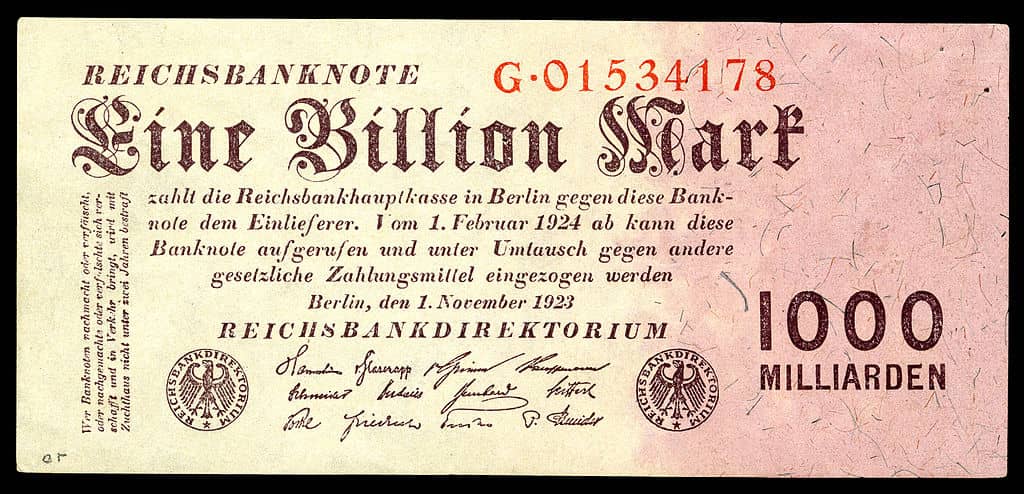 REICHSBANKNOTE
G·01534178
Eine Billion Mark
zahlt die Reichsbankhauptkasse in Berlin gegen diese Bank-
note dem Einlieferer. Vom 1. Februar 1924 ab kann diese
Banknote aufgerufen und unter Umtausch gegen andere
gesetzliche Zahlungsmittel eingezogen werden
Berlin, den 1. November 1923
REICHSBANKDIREKTORIUM
Wer Banknoten nachmacht oder verfälscht,
oder nachgemachte oder verfälschte sich ver-
schafft und in Verkehr bringt, wird mit
Zuchthaus nicht unter zwei Jahren bestraft
1000
MILLIARDEN
REICHSBANKDIREKTORIUM
Kauffmann
Seiffert
Friedrich
P. Schneider
REICHSBANKDIREKTORIUM